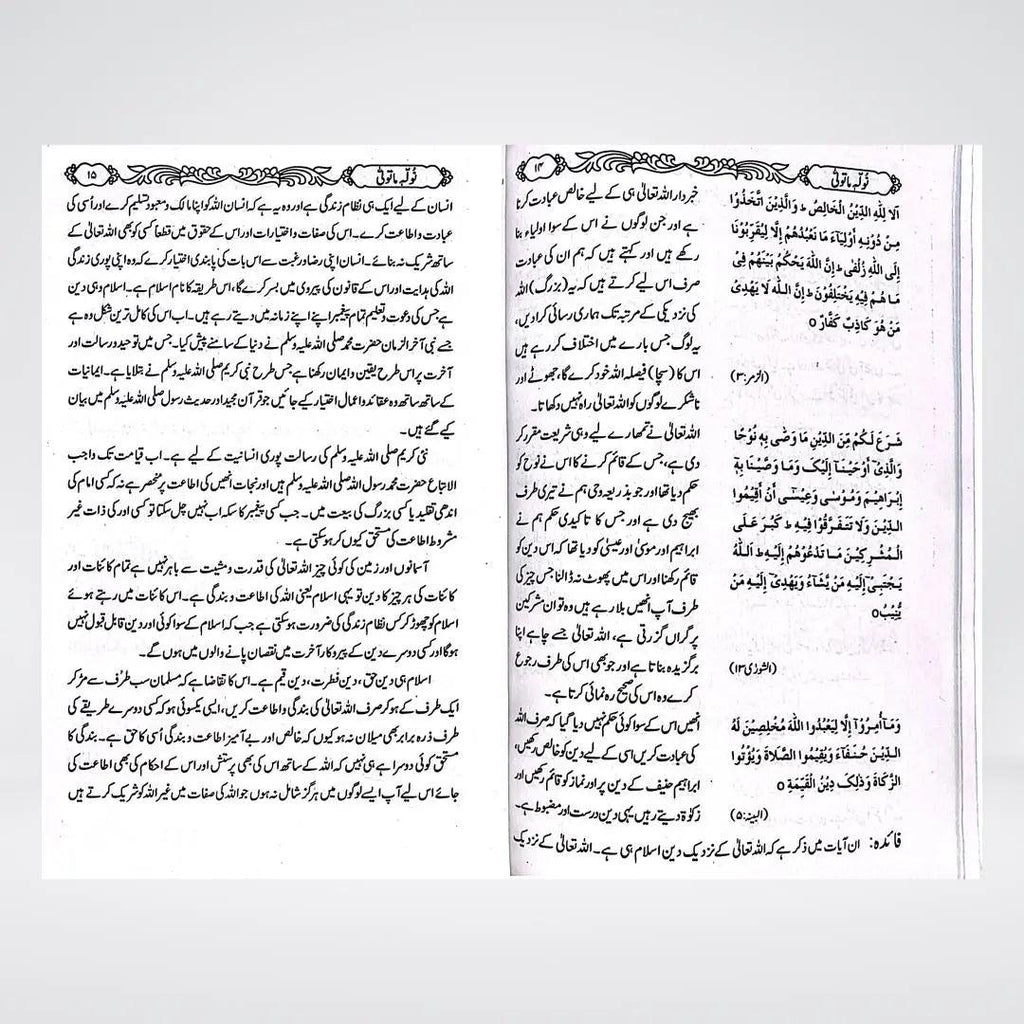 ۱۴
نُوَلِّہٖ مَا تَوَلّٰی
اَلَا لِلّٰهِ الدِّيْنُ الْخَالِصُ ط وَالَّذِيْنَ اتَّخَذُوْا
مِنْ دُوْنِهٖ اَوْلِيَآءَ مَا نَعْبُدُهُمْ اِلَّا لِيُقَرِّبُوْنَا
اِلَى اللّٰهِ زُلْفٰى ط اِنَّ اللّٰهَ يَحْكُمُ بَيْنَهُمْ فِيْ
مَا هُمْ فِيْهِ يَخْتَلِفُوْنَ ط اِنَّ اللّٰهَ لَا يَهْدِيْ
مَنْ هُوَ كَاذِبٌ كَفَّارٌ ○
(الزمر:۳)
خبردار اللہ تعالیٰ ہی کے لیے خالص عبادت کرنا
ہے اور جن لوگوں نے اس کے سوا اولیاء بنا
رکھے ہیں اور کہتے ہیں کہ ہم ان کی عبادت
صرف اس لیے کرتے ہیں کہ یہ (بزرگ) اللہ
کی نزدیکی کے مرتبہ تک ہماری رسائی کرا دیں،
یہ لوگ جس بارے میں اختلاف کر رہے ہیں
اس کا (سچا) فیصلہ اللہ خود کرے گا، جھوٹے اور
ناشکرے لوگوں کو اللہ تعالیٰ راہ نہیں دکھاتا۔
شَرَعَ لَكُمْ مِّنَ الدِّيْنِ مَا وَصّٰى بِهٖ نُوْحًا
وَّالَّذِيْٓ اَوْحَيْنَآ اِلَيْكَ وَمَا وَصَّيْنَا بِهٖٓ
اِبْرَاهِيْمَ وَمُوْسٰى وَعِيْسٰٓى اَنْ اَقِيْمُوا
الدِّيْنَ وَلَا تَتَفَرَّقُوْا فِيْهِ ط كَبُرَ عَلَى
الْمُشْرِكِيْنَ مَا تَدْعُوْهُمْ اِلَيْهِ ط اَللّٰهُ
يَجْتَبِيْٓ اِلَيْهِ مَنْ يَّشَآءُ وَيَهْدِيْٓ اِلَيْهِ مَنْ
يُّنِيْبُ ○
(الشورٰی:۱۳)
اللہ تعالیٰ نے تمھارے لیے وہی شریعت مقرر کر
دی ہے، جس کے قائم کرنے کا اس نے نوح کو
حکم دیا تھا اور جو بذریعہ وحی ہم نے تیری طرف
بھیج دی ہے اور جس کا تاکیدی حکم ہم نے
ابراہیم اور موسیٰ اور عیسیٰ کو دیا تھا کہ اس دین کو
قائم رکھنا اور اس میں پھوٹ نہ ڈالنا جس چیز کی
طرف آپ انھیں بلا رہے ہیں وہ تو ان مشرکین
پر گراں گزرتی ہے، اللہ تعالیٰ جسے چاہے اپنا
برگزیدہ بناتا ہے اور جو بھی اس کی طرف رجوع
کرے وہ اس کی صحیح رہ نمائی کرتا ہے۔
وَمَآ اُمِرُوْٓا اِلَّا لِيَعْبُدُوا اللّٰهَ مُخْلِصِيْنَ لَهُ
الدِّيْنَ حُنَفَآءَ وَيُقِيْمُوا الصَّلَاةَ وَيُؤْتُوا
الزَّكَاةَ وَذٰلِكَ دِيْنُ الْقَيِّمَةِ ○
(البینہ:۵)
انھیں اس کے سوا کوئی حکم نہیں دیا گیا کہ صرف اللہ
کی عبادت کریں اسی کے لیے دین کو خالص رکھیں،
ابراہیم حنیف کے دین پر اور نماز کو قائم رکھیں اور
زکوٰۃ دیتے رہیں یہی دین درست اور مضبوط ہے۔
فائدہ: ان آیات میں ذکر ہے کہ اللہ تعالیٰ کے نزدیک دین اسلام ہی ہے۔ اللہ تعالیٰ کے نزدیک
۱۵
نُوَلِّہٖ مَا تَوَلّٰی
انسان کے لیے ایک ہی نظام زندگی ہے اور وہ یہ ہے کہ انسان اللہ کو اپنا مالک و معبود تسلیم کرے اور اُسی کی
عبادت و اطاعت کرے۔ اس کی صفات و اختیارات اور اس کے حقوق میں قطعاً کسی کو بھی اللہ تعالیٰ کے
ساتھ شریک نہ بنائے۔ انسان اپنی رضا و رغبت سے اس بات کی پابندی اختیار کرے کہ وہ اپنی پوری زندگی
اللہ کی ہدایت اور اس کے قانون کی پیروی میں بسر کرے گا، اس طریقہ کا نام اسلام ہے۔ اسلام وہی دین
ہے جس کی دعوت و تعلیم تمام پیغمبر اپنے اپنے زمانہ میں دیتے رہے ہیں۔ اب اس کی کامل ترین شکل وہ ہے
جسے نبی آخر الزمان حضرت محمد صلی اللہ علیہ وسلم نے دنیا کے سامنے پیش کیا۔ جس میں توحید و رسالت اور
آخرت پر اس طرح یقین و ایمان رکھنا ہے جس طرح نبی کریم صلی اللہ علیہ وسلم نے بتلایا ہے۔ ایمانیات
کے ساتھ ساتھ وہ عقائد و اعمال اختیار کیے جائیں جو قرآن مجید اور حدیث رسول صلی اللہ علیہ وسلم میں بیان
کیے گئے ہیں۔
نبی کریم صلی اللہ علیہ وسلم کی رسالت پوری انسانیت کے لیے ہے۔ اب قیامت تک واجب
الاتباع حضرت محمد رسول اللہ صلی اللہ علیہ وسلم ہیں اور نجات انھیں کی اطاعت پر منحصر ہے نہ کہ کسی امام کی
اندھی تقلید یا کسی بزرگ کی بیعت میں۔ جب کسی پیغمبر کا سکہ اب نہیں چل سکتا تو کسی اور کی ذات غیر
مشروط اطاعت کی مستحق کیوں کر ہو سکتی ہے۔
آسمانوں اور زمین کی کوئی چیز اللہ تعالیٰ کی قدرت و مشیت سے باہر نہیں ہے تمام کائنات اور
کائنات کی ہر چیز کا دین تو یہی اسلام یعنی اللہ کی اطاعت و بندگی ہے۔ اس کائنات میں رہتے ہوئے
اسلام کو چھوڑ کر کس نظام زندگی کی ضرورت ہو سکتی ہے جب کہ اسلام کے سوا کوئی اور دین قابل قبول نہیں
ہوگا اور کسی دوسرے دین کے پیروکار آخرت میں نقصان پانے والوں میں ہوں گے۔
اسلام ہی دین حق، دین فطرت، دین قیم ہے۔ اس کا تقاضا ہے کہ مسلمان سب طرف سے مڑ کر
ایک طرف کے ہو کر صرف اللہ تعالیٰ کی بندگی و اطاعت کریں، ایسی یکسوئی ہو کہ کسی دوسرے طریقے کی
طرف ذرہ برابر بھی میلان نہ ہو کیوں کہ خالص اور بے آمیز اطاعت و بندگی اُسی کا حق ہے۔ بندگی کا
مستحق کوئی دوسرا ہے ہی نہیں کہ اللہ کے ساتھ اس کی بھی پرستش اور اس کے احکام کی بھی اطاعت کی
جائے اس لیے آپ ایسے لوگوں میں ہرگز شامل نہ ہوں جو اللہ کی صفات میں غیر اللہ کو شریک کرتے ہیں